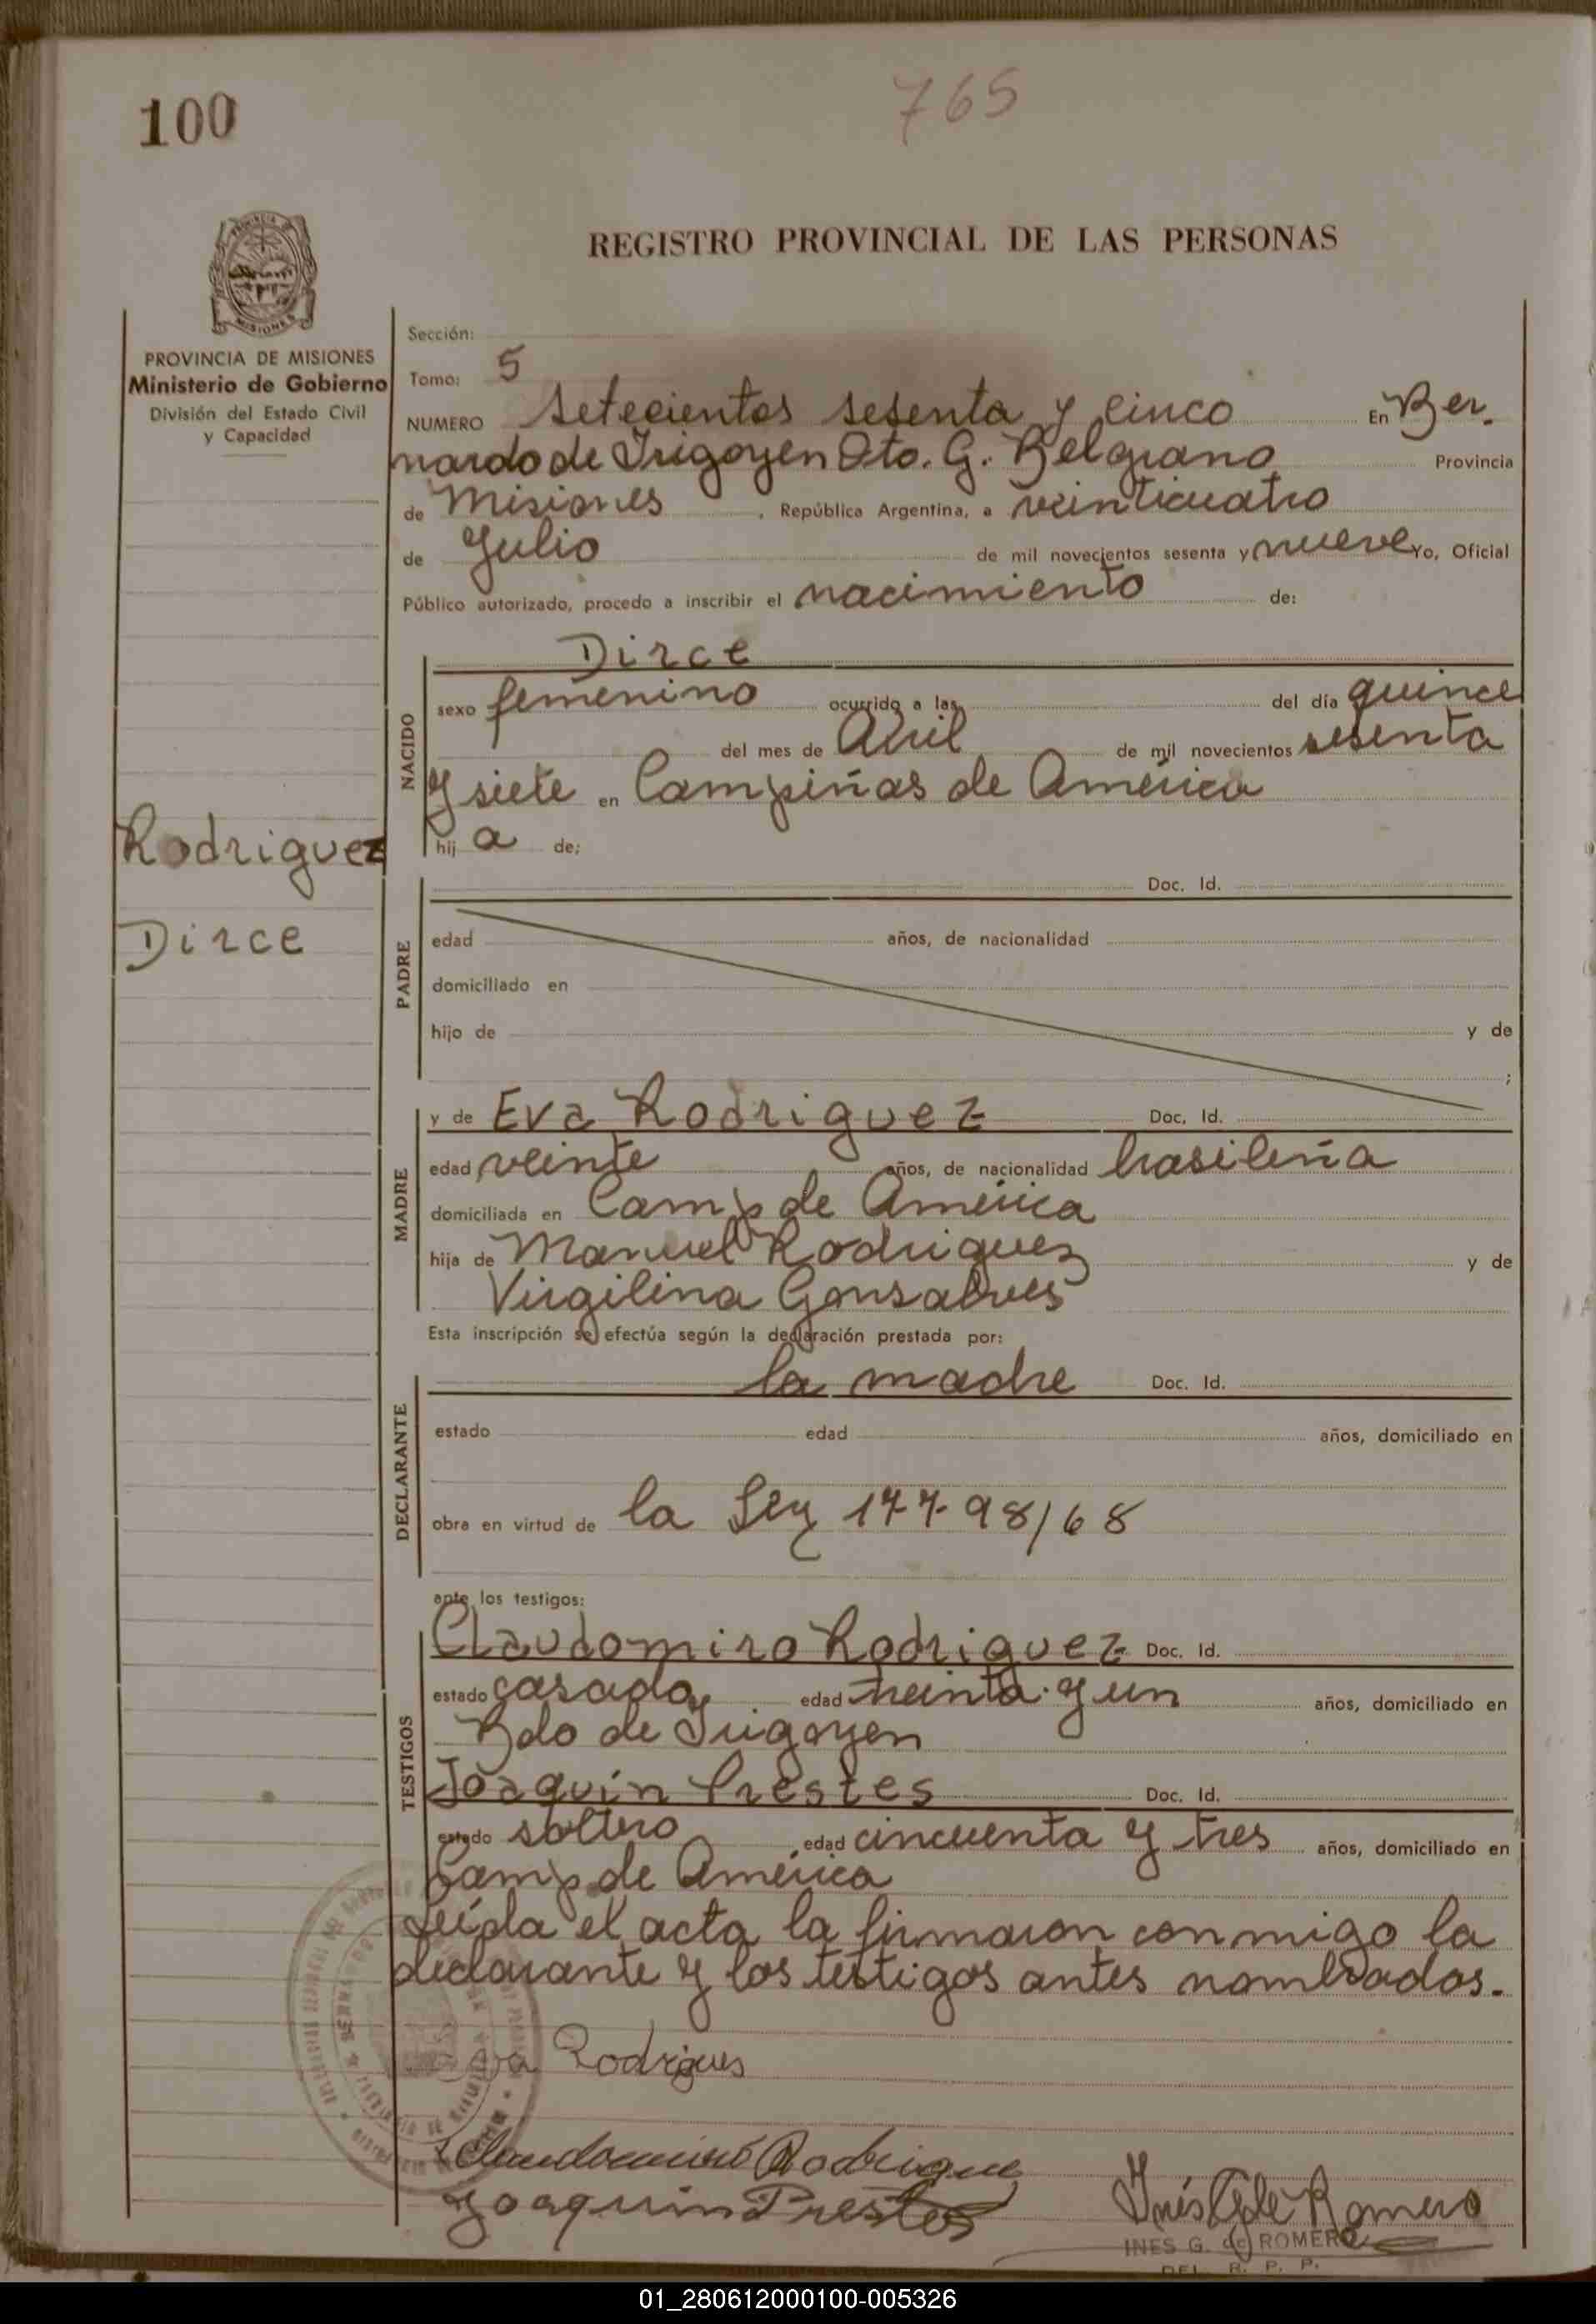 100
765
REGISTRO PROVINCIAL DE LAS PERSONAS
PROVINCIA DE MISIONES
Ministerio de Gobierno
División del Estado Civil
y Capacidad
Sección:
Tomo: 5
NUMERO Setecientos sesenta y cinco En Ber-
nardo de Irigoyen Dto. G. Belgrano Provincia
de Misiones, República Argentina, a veinticuatro
de Julio de mil novecientos sesenta y nueve Yo, Oficial
Público autorizado, procedo a inscribir el nacimiento de:
Rodriguez
Dirce
NACIDO
Dirce
sexo femenino ocurrido a las del día quince
del mes de Abril de mil novecientos sesenta
y siete en Campiñas de América
hij a de;
PADRE
Doc. Id.
edad años, de nacionalidad
domiciliado en
hijo de y de
;
MADRE
y de Eva Rodriguez Doc. Id.
edad veinte años, de nacionalidad brasileña
domiciliada en Camp de América
hija de Manuel Rodriguez y de
Virgilina Gonsalves
Esta inscripción se efectúa según la declaración prestada por:
DECLARANTE
la madre Doc. Id.
estado edad años, domiciliado en
obra en virtud de la Ley 177-98/68
ante los testigos:
TESTIGOS
Claudomiro Rodriguez Doc. Id.
estado casado edad treinta y un años, domiciliado en
Bdo de Irigoyen
Joaquín Prestes Doc. Id.
estado soltero edad cincuenta y tres años, domiciliado en
Camp de América
Leída el acta la firmaron conmigo la
declarante y los testigos antes nombrados.
Eva Rodrigues
Claudomiro Rodrigues
Joaquin Prestes
Inés G de Romero
INES G. de ROMERO
DEL. R. P. P.
01_280612000100-005326